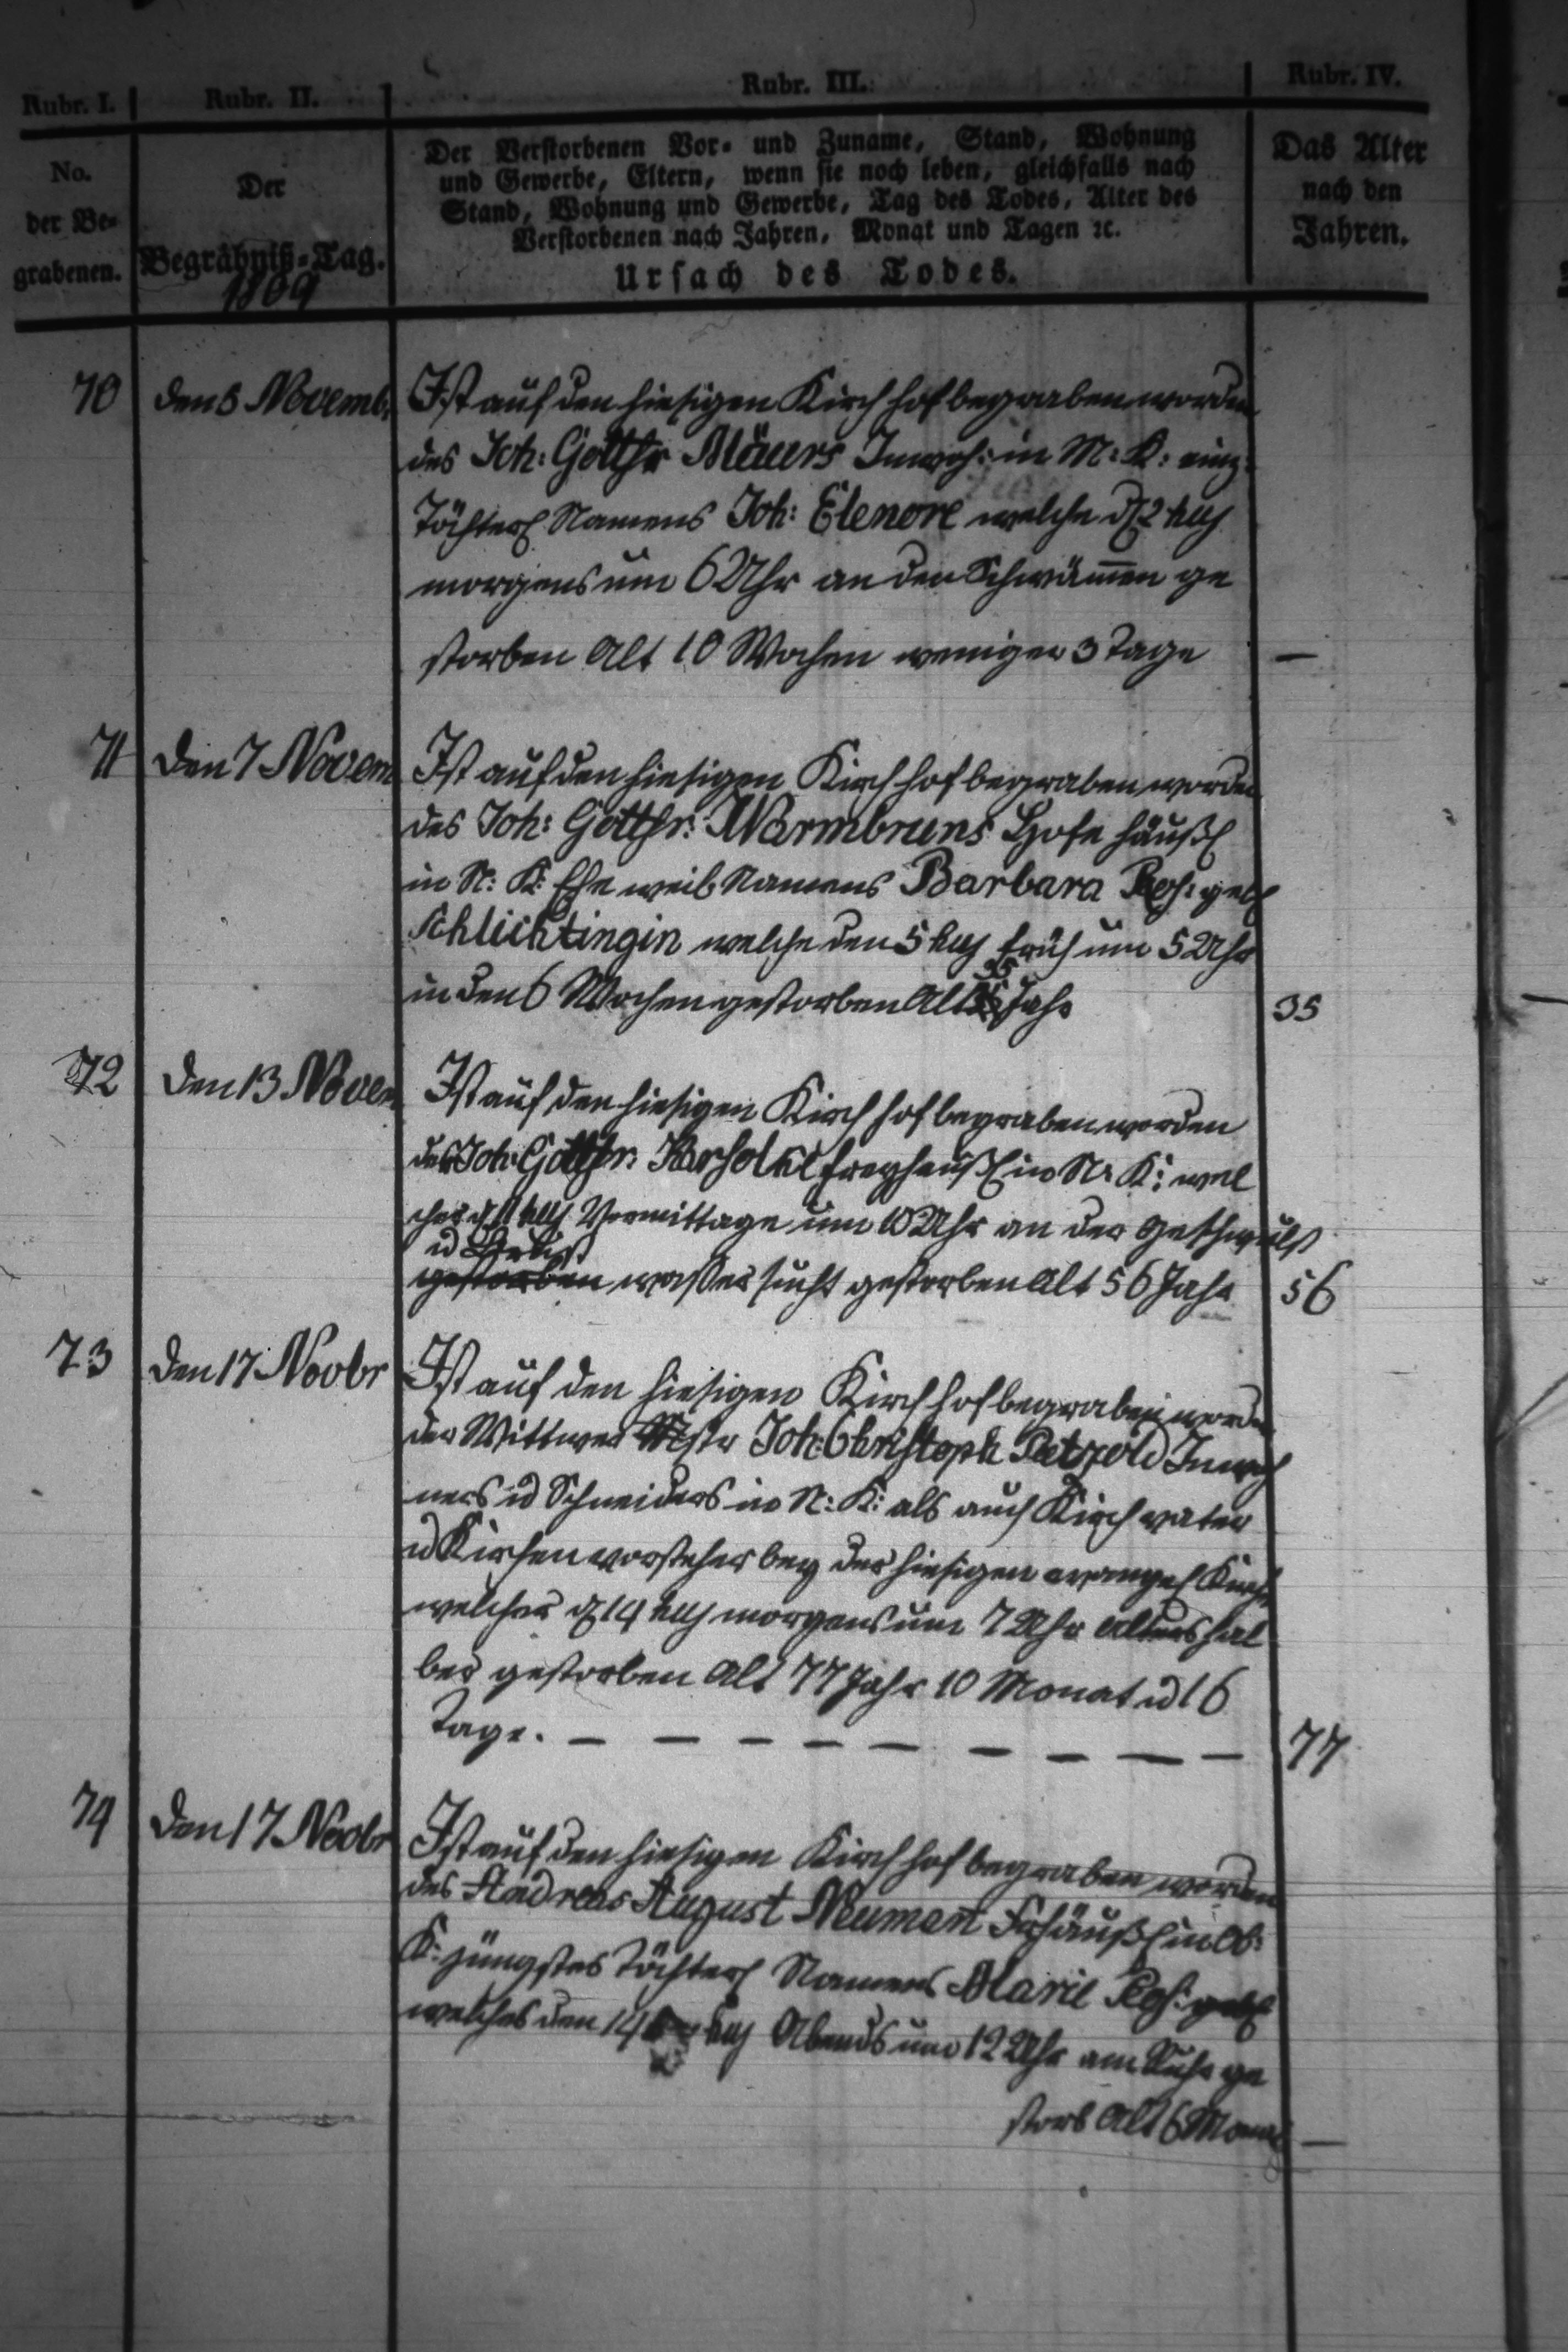 Rubr. I. Rubr. II. Rubr. III. Rubr. IV.
No.
der Be-
grabenen.
Der
Begräbniß-Tag.
1809
Der Verstorbenen Vor- und Zuname, Stand, Wohnung
und Gewerbe, Eltern, wenn sie noch leben, gleichfalls nach
Stand, Wohnung und Gewerbe, Tag des Todes, Alter des
Verstorbenen nach Jahren, Monat und Tagen ꝛc.
Ursach des Todes.
Das Alter
nach den
Jahren.
70 den 5 Novemb. Ist auf den hiesigen Kirch hof begraben worden
des Joh: Gottfr Mäuers Inwoh: in M: K: einz:
Töchterl Namens Joh: Elenore welche d 2 huj
morgens um 6 Uhr an den Schwämen ge
storben Alt 10 Wochen weniger 3 Tage —
71 den 7 Novem Ist auf den hiesigen Kirch hof begraben worden
des Joh: Gottfr: Warmbruns Hofe häußl
in N: K: Ehe weib Namens Barbara Ros: geb
Schlichtingin welche den 5 huj früh um 5 Uhr
in den 6 Wochen gestorben Alt 35 Jahr 35
72 den 13 Novem Ist auf den hiesigen Kirch hof begraben worden
der Joh: Gottfr: freyhäußl in N: K: wel
cher d 11 huj Vormittage um 10 Uhr an der Geschwulst
gestorben wasser sucht gestorben Alt 56 Jahr 56
73 den 17 Novbr Ist auf den hiesigen Kirch hof begraben worden
der Wittwer Mstr Joh: Christoph Petzold Inwoh
ners u Schneiders in N: K: als auch Kirch vater
u Kirchen vorsteher bey der hiesigen evangel Kirch
welcher d 14 huj morgens um 7 Uhr Alters hal
ber gestorben Alt 77 Jahr 10 Monat u 16
Tage. — — — — — — — — — 77
74 den 17 Novbr Ist auf den hiesigen Kirch hof begraben worden
des Andreas August Neuman häußl in Ob:
K: jüngstes Töchterl Namens Marie Ros:
welches den 14 huj Abends um 12 Uhr am ge
storb Alt 6 Monat —